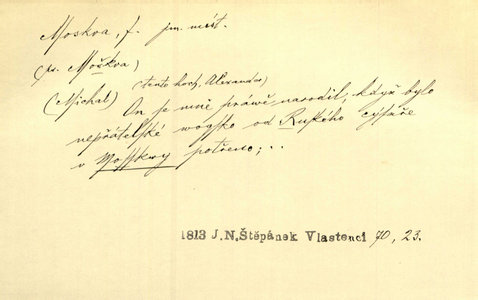 Moskva, f. jm. míst.
(ps. Moškva)
(Michal) (tento hoch, Alexander)
On se mně práwě narodil, když bylo
nepřátelské wogsko od Ruského cýsaře
v Mosskwy potřeno; ..
1813 J.N.Štěpánek Vlastenci 70, 23.